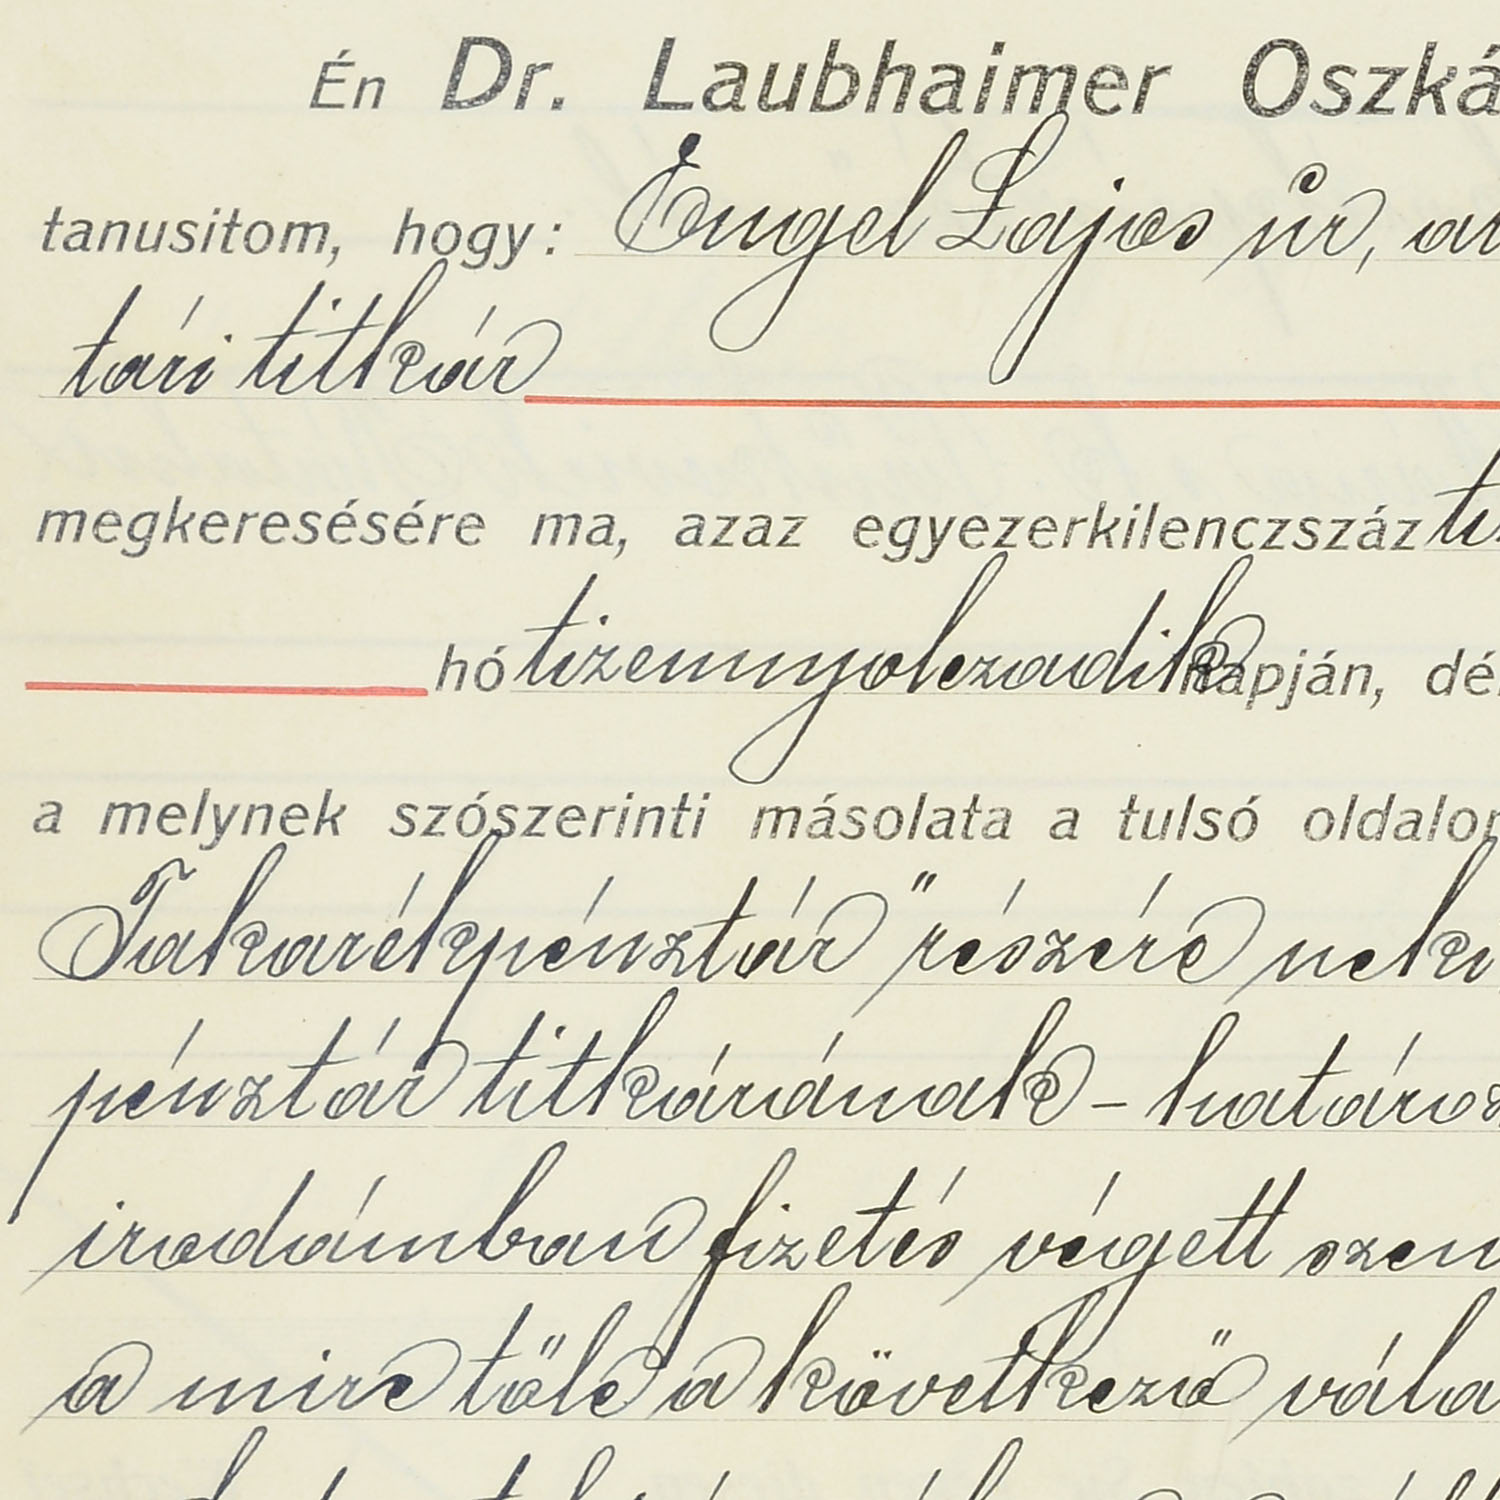 Én Dr. Laubhaimer Oszká
tanusitom, hogy: Engel Lajos úr, a
tári titkár
megkeresésére ma, azaz egyezerkilenczszáz ti
hó tizennyolczadik napján, dé
a melynek szószerinti másolata a tulsó oldalon
Takarékpénztár" részére nek
pénztár titkárának - határoz
irodámban fizetés végett szem
a mire tőle a következő vála